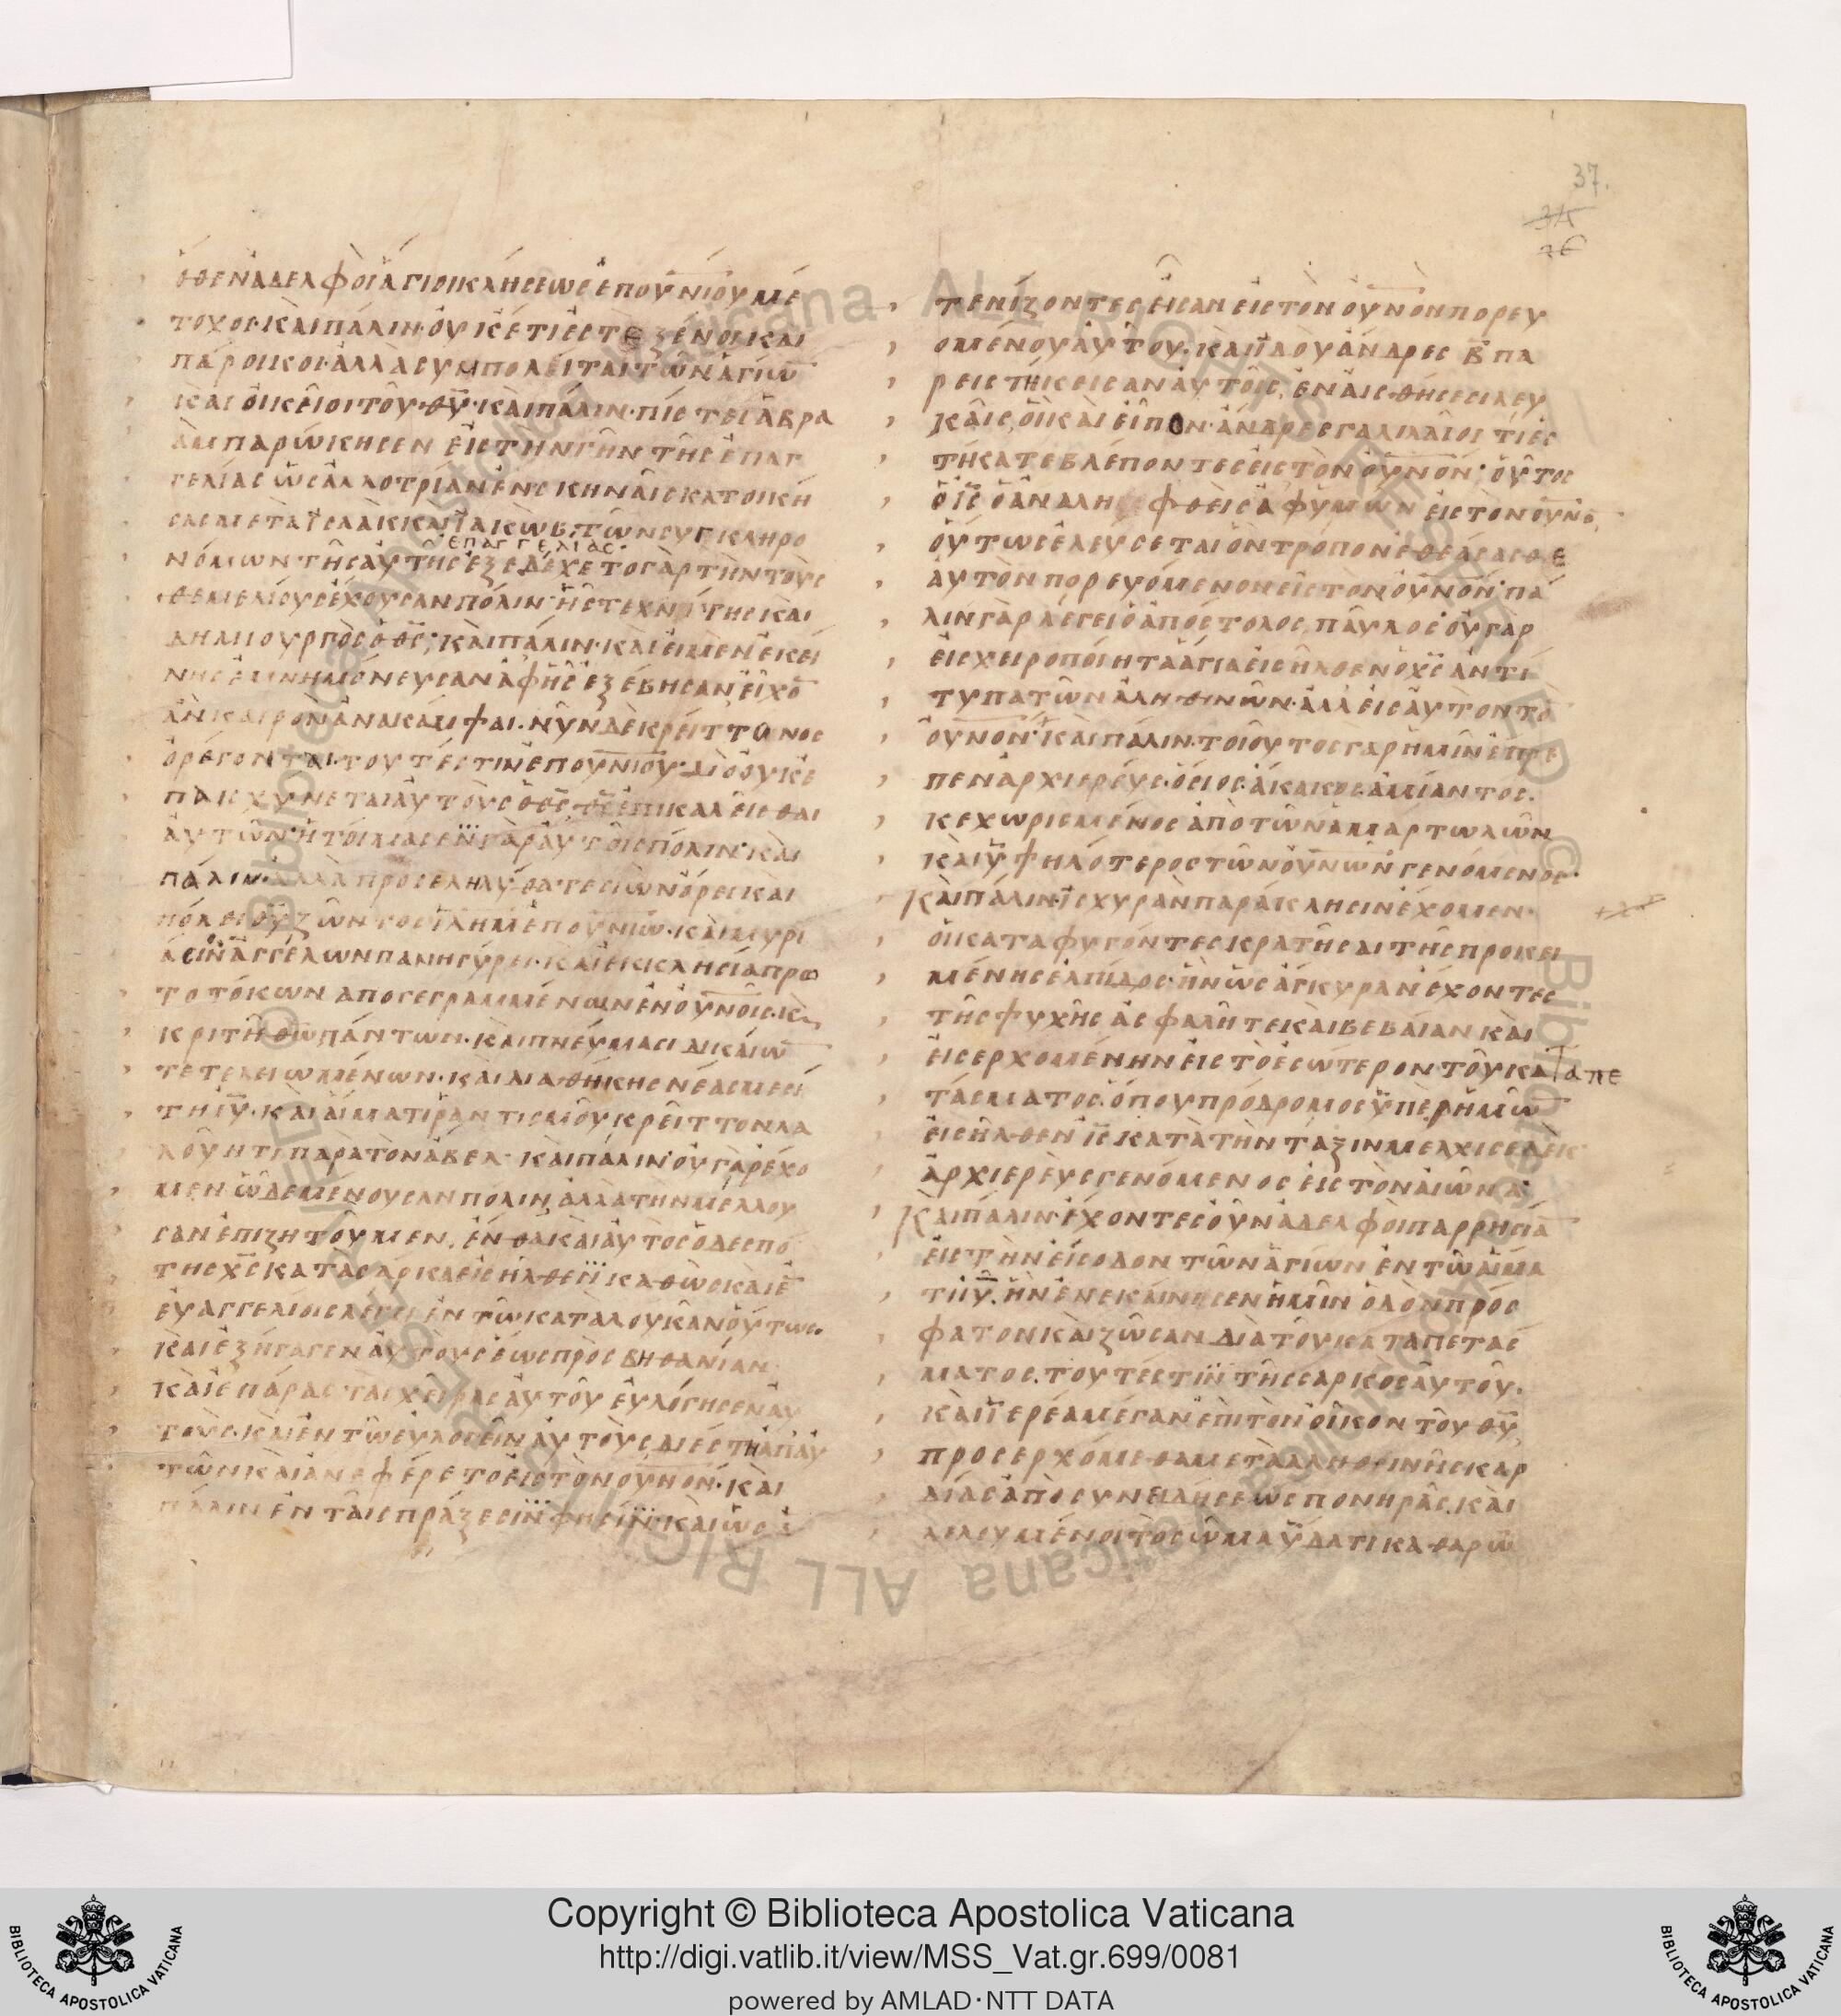 37.
ὅθεν ἀδελφοὶ ἅγιοι κλήσεως ἐπουνίου μέ
τοχοι· καὶ πάλιν· οὐκέτι ἐστὲ ξένοι καὶ
πάροικοι· ἀλλὰ συμπολεῖται τῶν ἁγίω̅
καὶ οἰκεῖοι τοῦ θ̅υ̅· καὶ πάλιν· πίστει ἀβρα
ὰμ παρώκησεν εἰς τὴν γῆν τῆς ἐπαγ
γελίας ὡς ἀλλοτρίαν ἐν σκηναῖς κατοική
σας μετὰ ἰσαὰκ καὶ ἰακὼβ τῶν συγκληρο
ἐπαγγελίας·
νόμων τῆς αὐτῆς ἐξεδέχετο γὰρ τὴν τοὺς
θεμελίους ἔχουσαν πόλιν· ἧς τεχνίτης καὶ
δημιουργὸς ὁ θ̅ς̅· καὶ πάλιν· καὶ εἰ μὲν ἐκεί
νης ἐμνημόνευσαν ἀφ' ἧς ἐξέβησαν εἶχο̅
ἂν καιρὸν ἀνακάμψαι. νῦν δὲ κρείττονος
ὀρέγονται· τουτέστιν ἐπουνίου· διὸ οὐκ ἐ
παισχύνεται αὐτοὺς ὁ θ̅ς̅ θ̅ς̅ ἐπικαλεῖσθαι
αὐτῶν· ἡτοίμασεν γὰρ αὐτοῖς πόλιν· καὶ
πάλιν· ἀλλὰ προσεληλύθατε σιὼν ὄρει καὶ
πόλει θ̅υ̅ ζῶντος ἰ̅λ̅η̅μ̅ ἐπουνίω· καὶ μυρι
άσιν ἀγγέλων πανηγύρει· καὶ ἐκκλησία πρω
τοτόκων ἀπογεγραμμένων ἐν οὐνοῖς· κ̀
κριτῆ θ̅ω̅ πάντων· καὶ πνεύμασι δικαίω̅
τετελειωμένων· καὶ διαθήκης νέας μεσί
τη ἰ̅υ̅· καὶ αἵματι ῥαντισμοῦ κρεῖττον λα
λοῦντι παρὰ τὸν ἄβελ· καὶ πάλιν οὐ γὰρ ἔχο
μεν ὧδε μένουσαν πόλιν, ἀλλὰ τὴν μέλλου
σαν ἐπιζητοῦμεν. ἔνθα καὶ αὐτὸς ὁ δεσπό
της χ̅ς̅ κατὰ σάρκα εἰσῆλθεν καθὼς καὶ ἐ̅
εὐαγγελίοις λέγει ἐν τῶ κατὰ λουκᾶν οὕτως
καὶ ἐξήγαγεν αὐτοὺς ἕως πρὸς βηθανίαν
καὶ ἐπάρας τὰς χεῖρας αὐτοῦ εὐλόγησεν αὐ
τούς· καὶ ἐν τῶ εὐλογεῖν αὐτοὺς διέστη ἀπ' αὐ
τῶν καὶ ἀνεφέρετο εἰς τὸν οὐνόν· καὶ
πάλιν ἐν ταῖς πράξεσιν φησίν· καὶ ὡς ἀ
τενίζοντες ἦσαν εἰς τὸν οὐνὸν πορευ
ομένου αὐτοῦ. καὶ ἰδοὺ ἄνδρες β̅ πα
ρειστήκεισαν αὐτοῖς, ἐν αἰσθήσεσι λευ
καῖς, οἳ καὶ εἶπον· ἄνδρες γαλιλαῖοι τί ἑσ
τήκατε βλέποντες εἰς τὸν οὐνόν· οὗτος
ὁ ἰ̅ς̅ ὁ ἀναληφθεὶς ἀφ' ὑμῶν εἰς τὸν οὐνὸ̅,
οὕτως ἐλεύσεται ὃν τρόπον ἐθεάσασθε
αὐτὸν πορευόμενον εἰς τὸν οὐνόν· πά
λιν γὰρ λέγει ὁ ἀπόστολος παῦλος· οὐ γὰρ
εἰς χειροποίητα ἅγια εἰσῆλθεν ὁ χ̅ς̅ ἀντί
τυπα τῶν ἀληθινῶν· ἀλλ' εἰς αὐτὸν τὸ̅
οὐνόν· καὶ πάλιν· τοιοῦτος γὰρ ἡμῖν ἔπρε
πεν ἀρχιερεύς· ὅσιος· ἄκακος· ἀμίαντος.
κεχωρισμένος ἀπὸ τῶν ἁμαρτωλῶν
καὶ ὑψηλότερος τῶν οὐνῶν γενόμενος·
Καὶ πάλιν· ἰσχυρὰν παράκλησιν ἔχομεν·
οἱ καταφυγόντες κρατῆσαι τῆς προκει
μένης ἐλπίδος· ἣν ὡς ἄγκυραν ἔχοντες
τῆς ψυχῆς ἀσφαλῆ τε καὶ βεβαίαν καὶ
εἰσερχομένην εἰς τὸ ἐσώτερον τοῦ κα ταπε
τάσματος· ὅπου πρόδρομος ὑπὲρ ἡμῶ̅
εἰσῆλθεν ἰ̅ς̅ κατὰ τὴν τάξιν μελχισεδὲκ
ἀρχιερεὺς γενόμενος εἰς τὸν αἰῶνα·
Καὶ πάλιν· ἔχοντες οὖν ἀδελφοὶ παρρησία̅
εἰς τὴν εἴσοδον τῶν ἁγίων ἐν τῶ αἵμα
τι ἰ̅υ̅. ἣν ἐνεκαίνισεν ἡμῖν ὁδὸν πρόσ
φατον καὶ ζῶσαν διὰ τοῦ καταπετάσ
ματος. τουτέστιν τῆς σαρκὸς αὐτοῦ.
καὶ ἱερέα μέγαν ἐπὶ τὸν οἶκον τοῦ θ̅υ̅,
προσερχόμεθα μετὰ ἀληθινῆς καρ
δίας ἀπὸ συνειδήσεως πονηρᾶς. καὶ
λελουμένοι τὸ σῶμα ὕδατι καθαρῶ
Copyright © Biblioteca Apostolica Vaticana
http://digi.vatlib.it/view/MSS_Vat.gr.699/0081
powered by AMLAD·NTT DATA
BIBLIOTECA APOSTOLICA VATICANA
BIBLIOTECA APOSTOLICA VATICANA